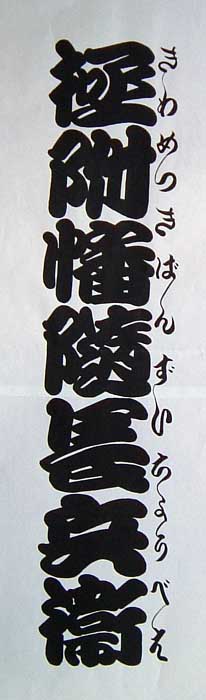 極附幡随長兵衛
きわめつきばんずいちょうべえ